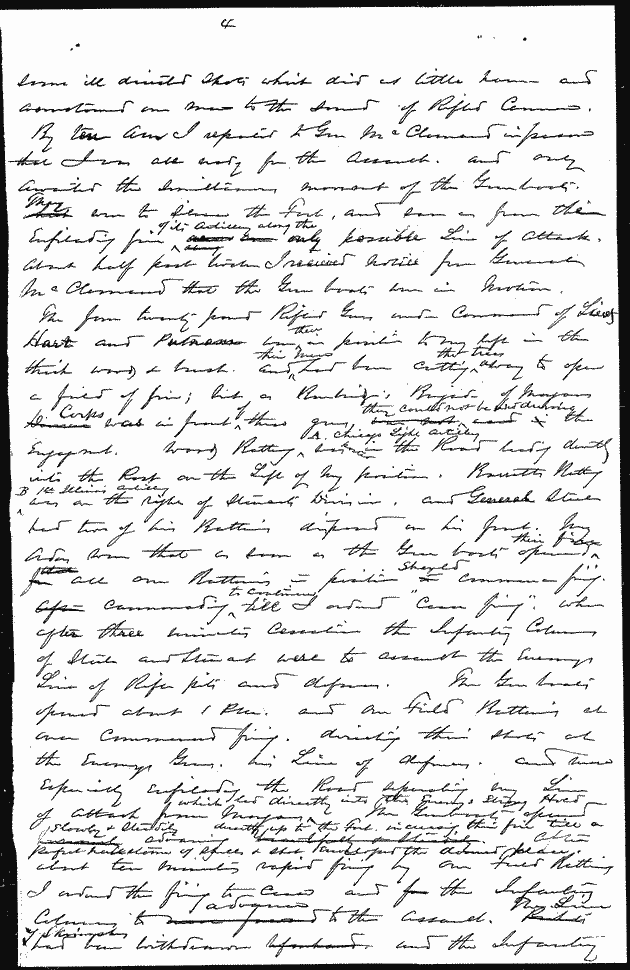 4
some ill directed shots which did us little harm and
accustomed our men to the sound of Rifled Cannon.
By ten A.M. I reported to Gen McClernand in person
that I was all ready for the Assault. and only
awaited the simultaneous moment of the Gunboats.
They
were to silence the Fort, and soon as from their
of its artillery along the
Enfilading fire only possible Line of Attack.
along
About half past twelve I received notice from General
McClernand that the Gun boats were in Motion.
The four twenty pound Rifled Guns under Command of Lieuts
Hart and Putnam were in position to my left in the
their
their men the trees
thick woods & brush. and had been cutting away to open
a field of fire; but as Burbridge's Brigade of Morgans
Corps they could not be used during
was in front of these guns, the
Engagement. Woods Battery, was in the Road leading directly
A. Chicago Light Artillery
into the Post on the Left of my position. Barretts Batty
B 1st Illinois artillery
was on the right of Stuarts Division. and General Steele
had two of his Batteries disposed on his front. My
orders were that as soon as the Gun boats opened
their fire
all our Batteries in position should commence firing.
to continue
commencing till I ordered "Cease firing". when
after three minutes Cessation the Infantry Columns
of Steele and Stuart were to assault the Enemys
Line of Rifle pits and defense. The Gun boats
opened about 1 P.M. and our Field Batteries at
once Commenced firing. directing their shots at
the Enemys Guns. his Line of defenses. and more
Especially enfilading the Road separating my Line
which led directly into the Enemys Strong Hold
of attack from Morgans. The Gunboats opened
slowly & Steadily directly up to the Fort. increasing their fire till a
advancing
perfect hailstorm of shells & shot enveloped the doomed place. After
about ten minutes rapid firing by our Field Batteries
I ordered the firing to Cease and the Infantry
advance My Line
Columns to to the assault.
of Skirmishers
had been withdrawn and the Infantry